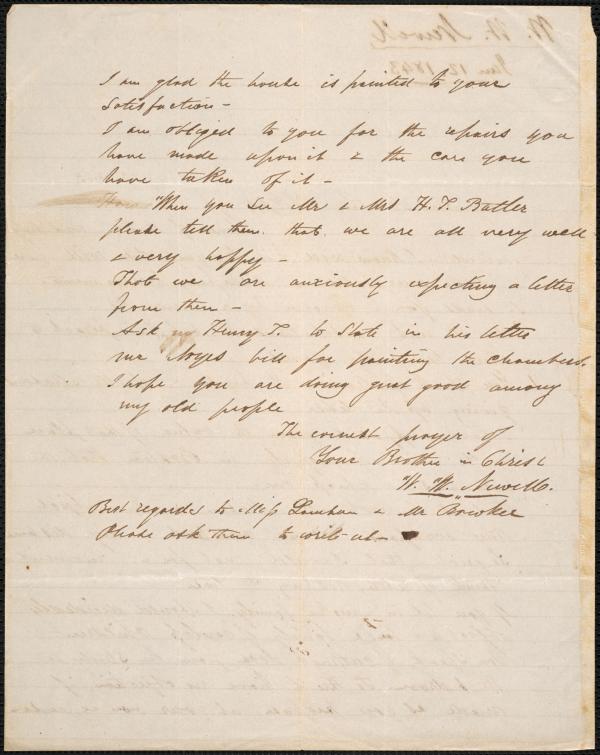 I am glad the house is painted to your
satisfaction -
I am obliged to you for the repairs you
have made upon it & the care you
have taken of it -
When you see Mr & Mrs H. T. Butler
please tell them that we are all very well
& very happy -
That we are anxiously expecting a letter
from them -
Ask Henry T. to state in his letter
mr Noyes bill for painting the chambers.
I hope you are doing great good among
my old people
The earnest prayer of
Your Brother in Christ
W. W. Newell.
Best regards to Miss & Mr
Please ask them to write us -
W. W. Newell
Jan 12 1843